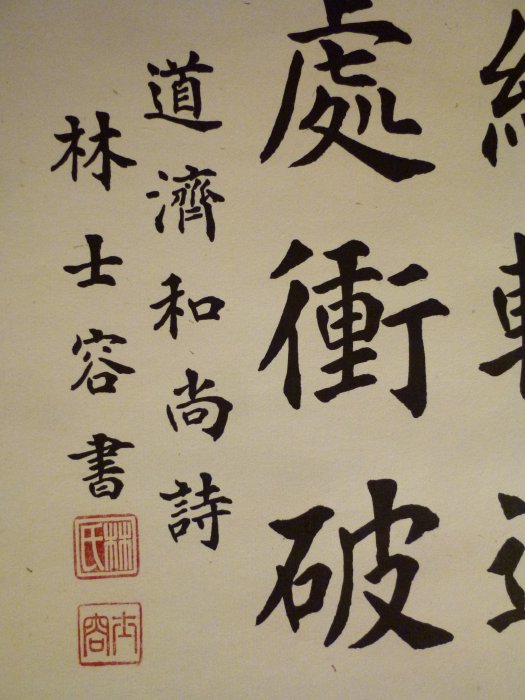 處衝破
道濟和尚詩
林士容書
林氏
士容